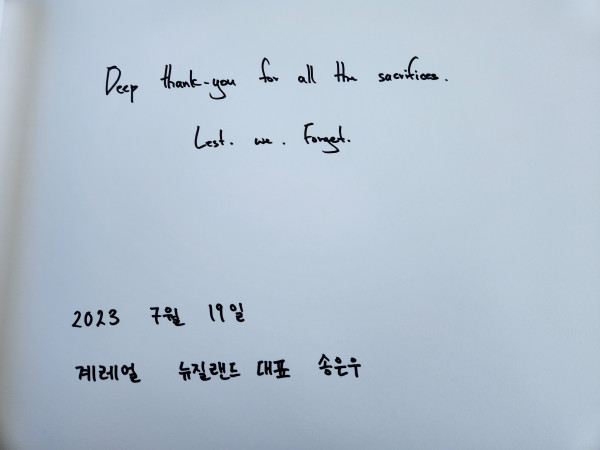 Deep thank-you for all the sacrifices.
Lest. we. Forget.
2023 7월 19일
계레얼 뉴질랜드 대표 송은우